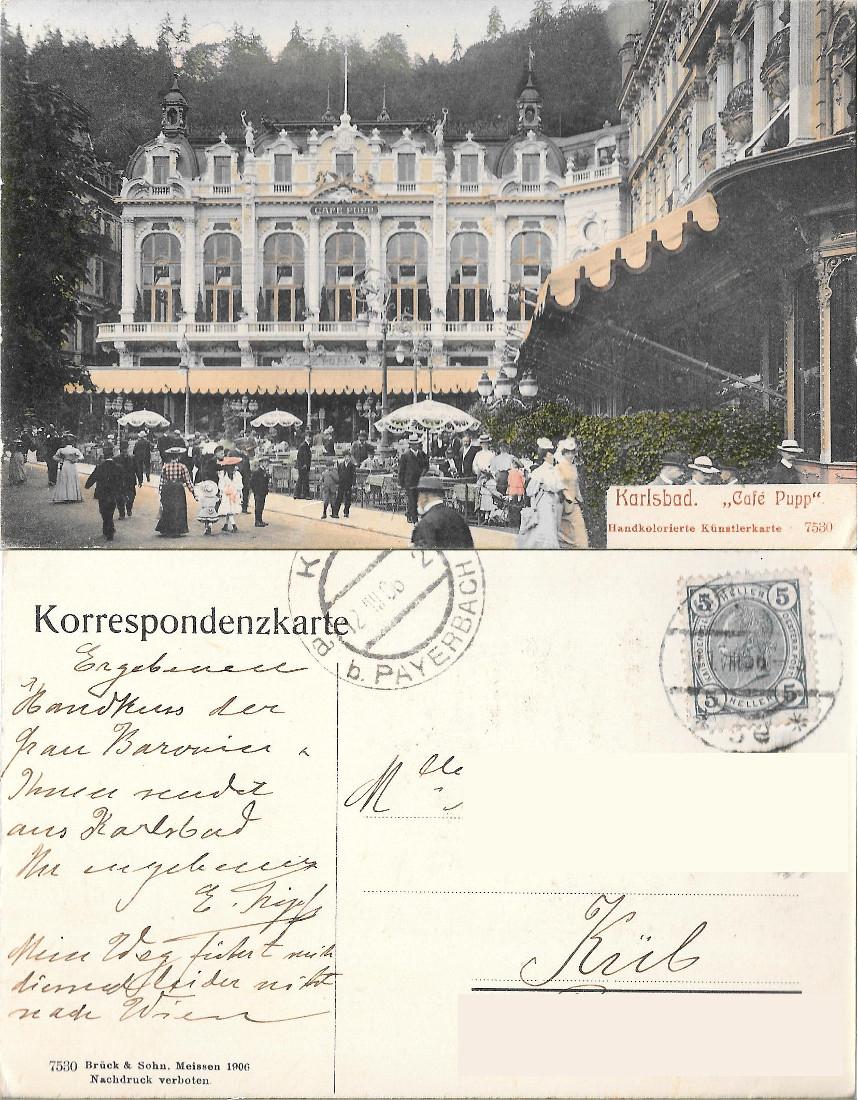 CAFE PUPP
Karlsbad. „Café Pupp“.
Handkolorierte Künstlerkarte 7530
Korrespondenzkarte
K
2
12 VIII 06
a. b. PAYERBACH
5 HELLER 5
5 HELLER 5
Ergebenen
Handkuss der
Frau Baronin u
Ihnen sendet
aus Karlsbad
Ihr ergebener
E.
Mein Weg führt mich
diesmal leider nicht
nach Wien
Mlle
Küb
7530 Brück & Sohn, Meissen 1906
Nachdruck verboten.